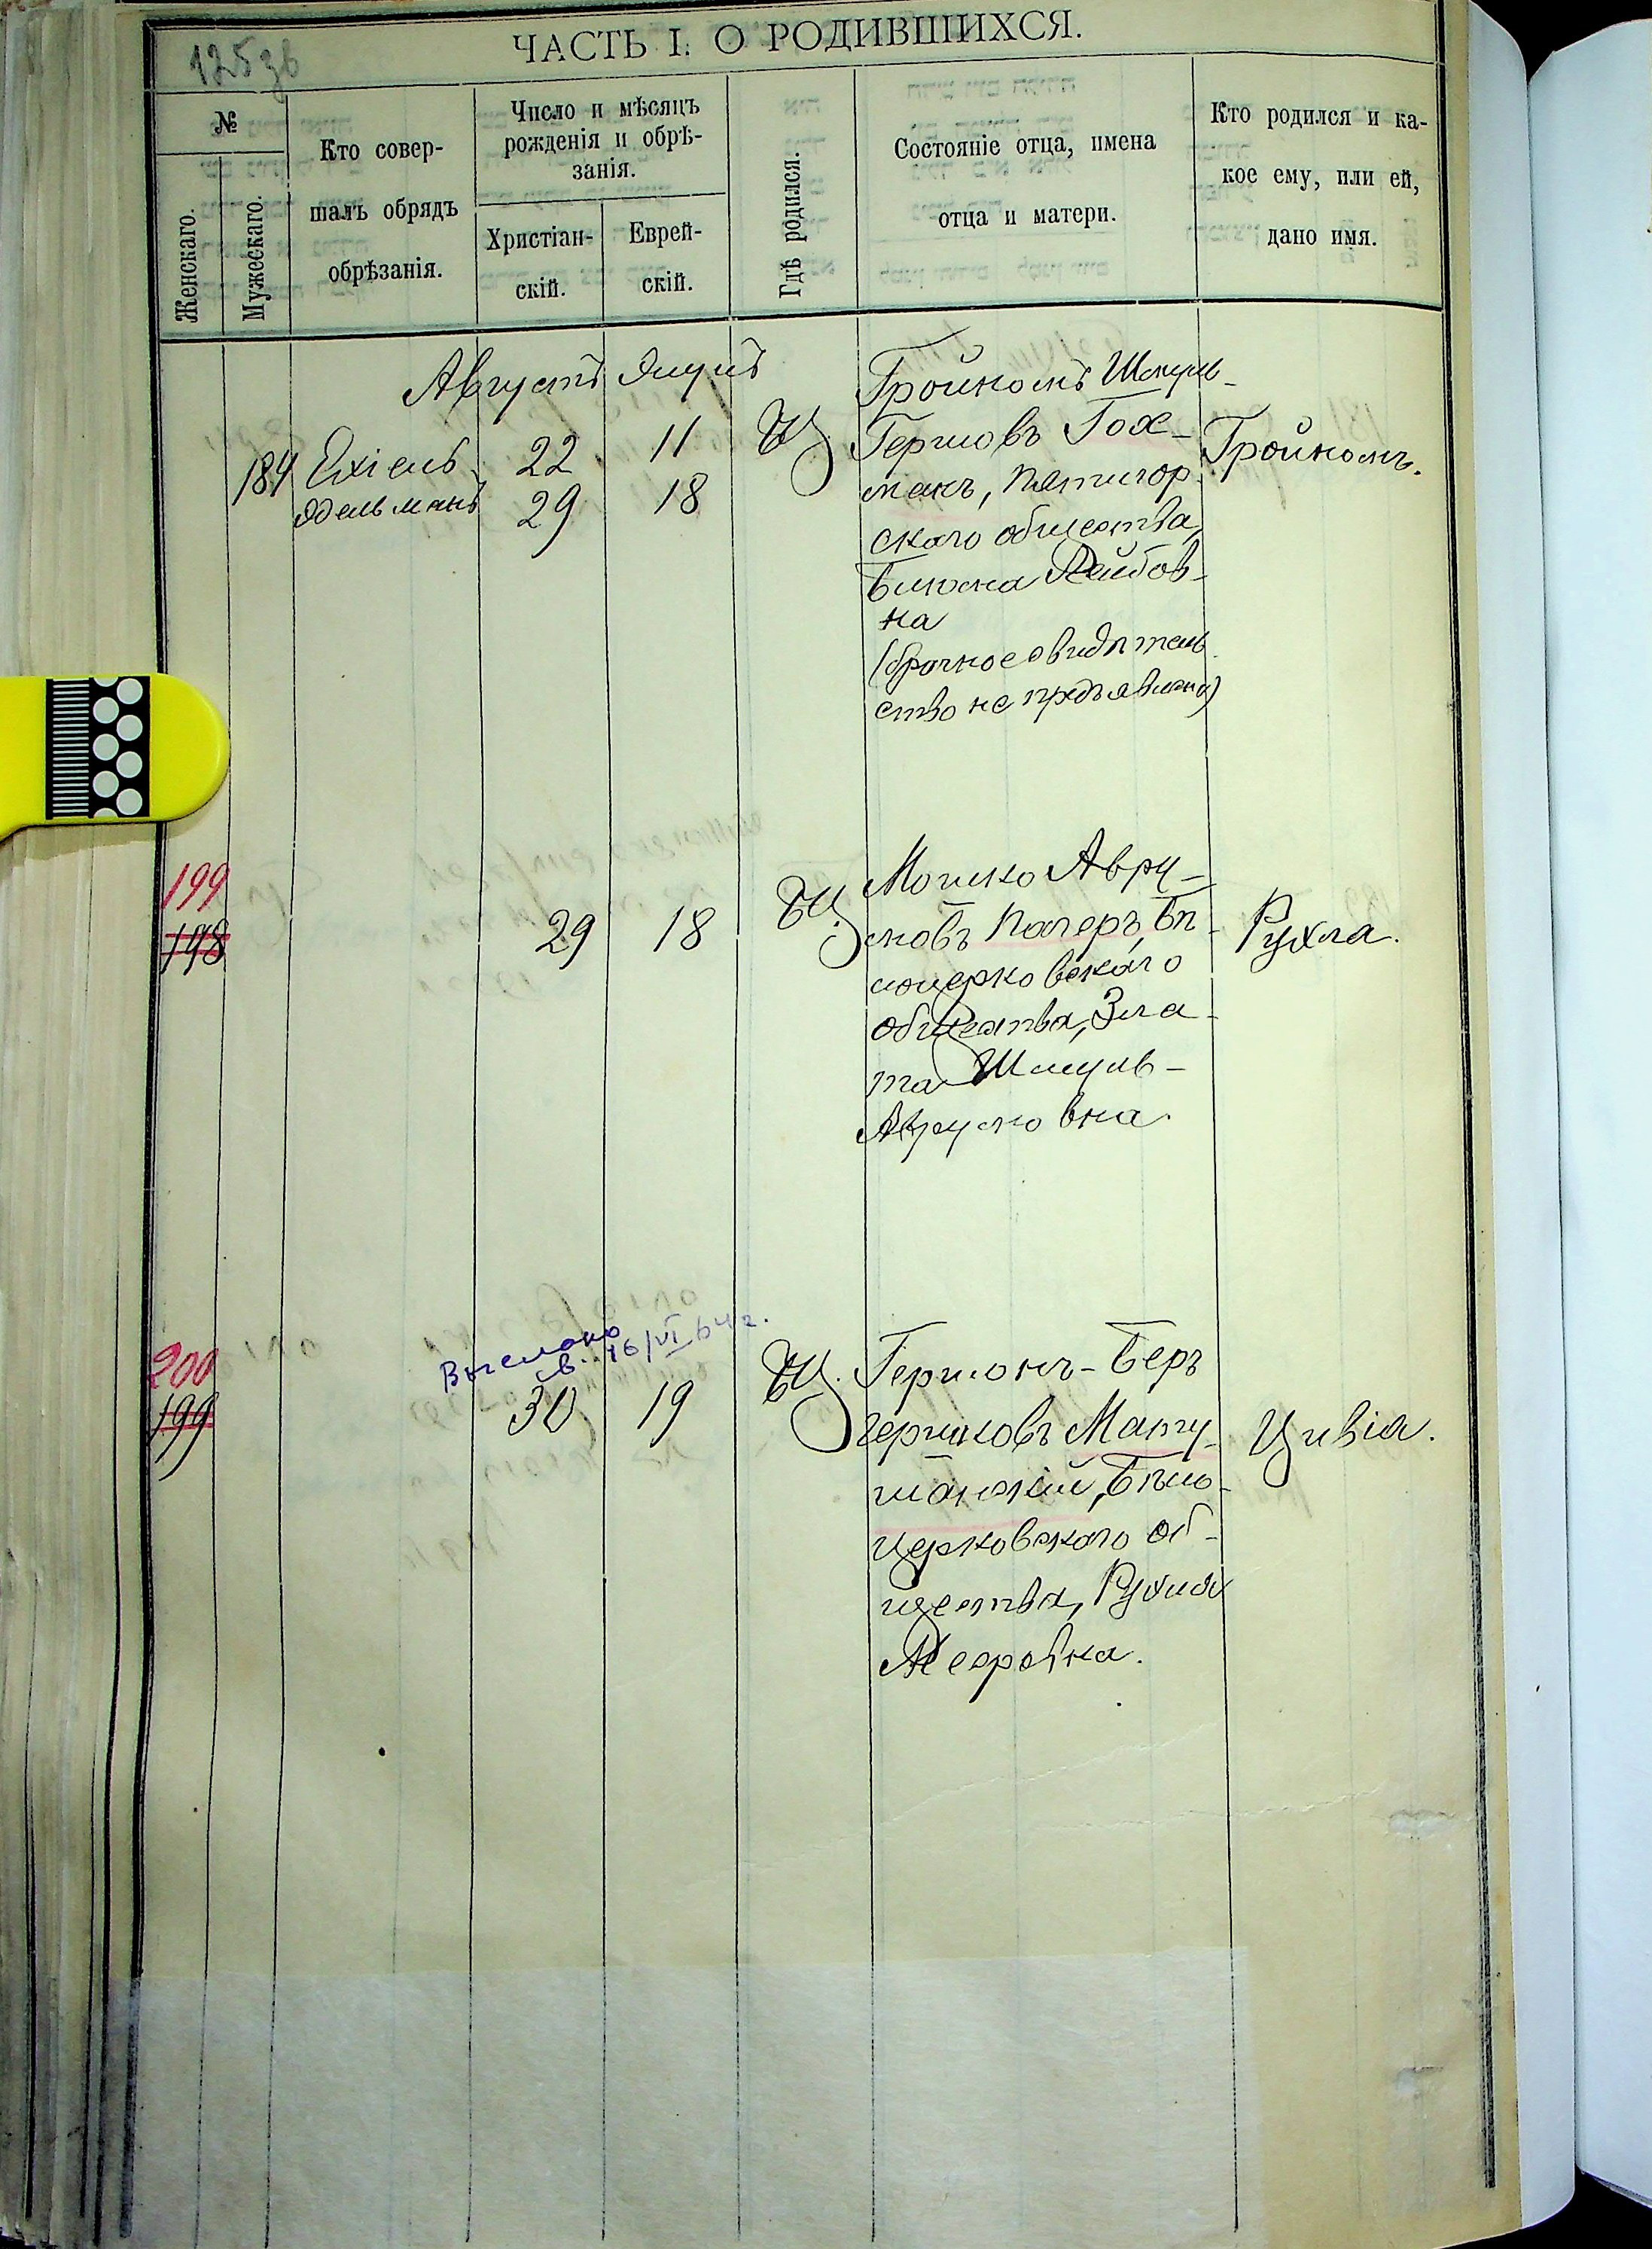 125 зв
ЧАСТЬ I. О РОДИВШИХСЯ.
№
Женскаго.
Мужескаго.
Кто совер-
шалъ обрядъ
обрѣзанія.
Число и мѣсяцъ
рожденія и обрѣ-
занія.
Христіан-
скій.
Еврей-
скій.
Гдѣ родился.
Состояніе отца, имена
отца и матери.
Кто родился и ка-
кое ему, или ей,
дано имя.
Августъ Элулъ
184 Ехіель
Эдельманъ
22 11
29 18
БЦ
Тройномъ Шмуль-
Гершовъ Гох-
манъ, Пятигор
скаго общества,
Блюма Лейбов-
на
(брачное свидѣтель
ство не предъявлено)
Тройномъ.
199
198
29 18
БЦ
Мошко Авру-
мовъ Пагеръ, Бѣ-
лоцерковскаго
общества, Зла-
та Шмуль-
Аврумовна.
Рухла.
200
199
Выслано
св. 16/VI 64 г.
30 19
БЦ.
Гершонъ-Беръ
Гершковъ Мату-
шанскій, Бѣло-
церковскаго об-
щества, Рухля
Мееровна.
Цивіа.